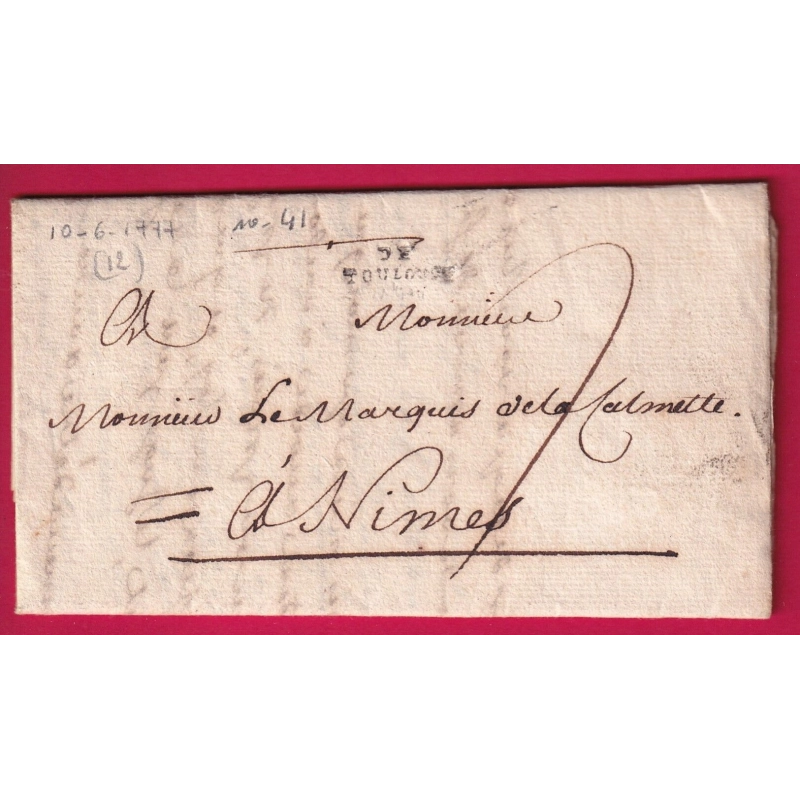 10-6-1777
(12)
no-41
DE
TOULOUSE
A Monsieur
Monsieur Le Marquis de la Calmette.
= à Nimes